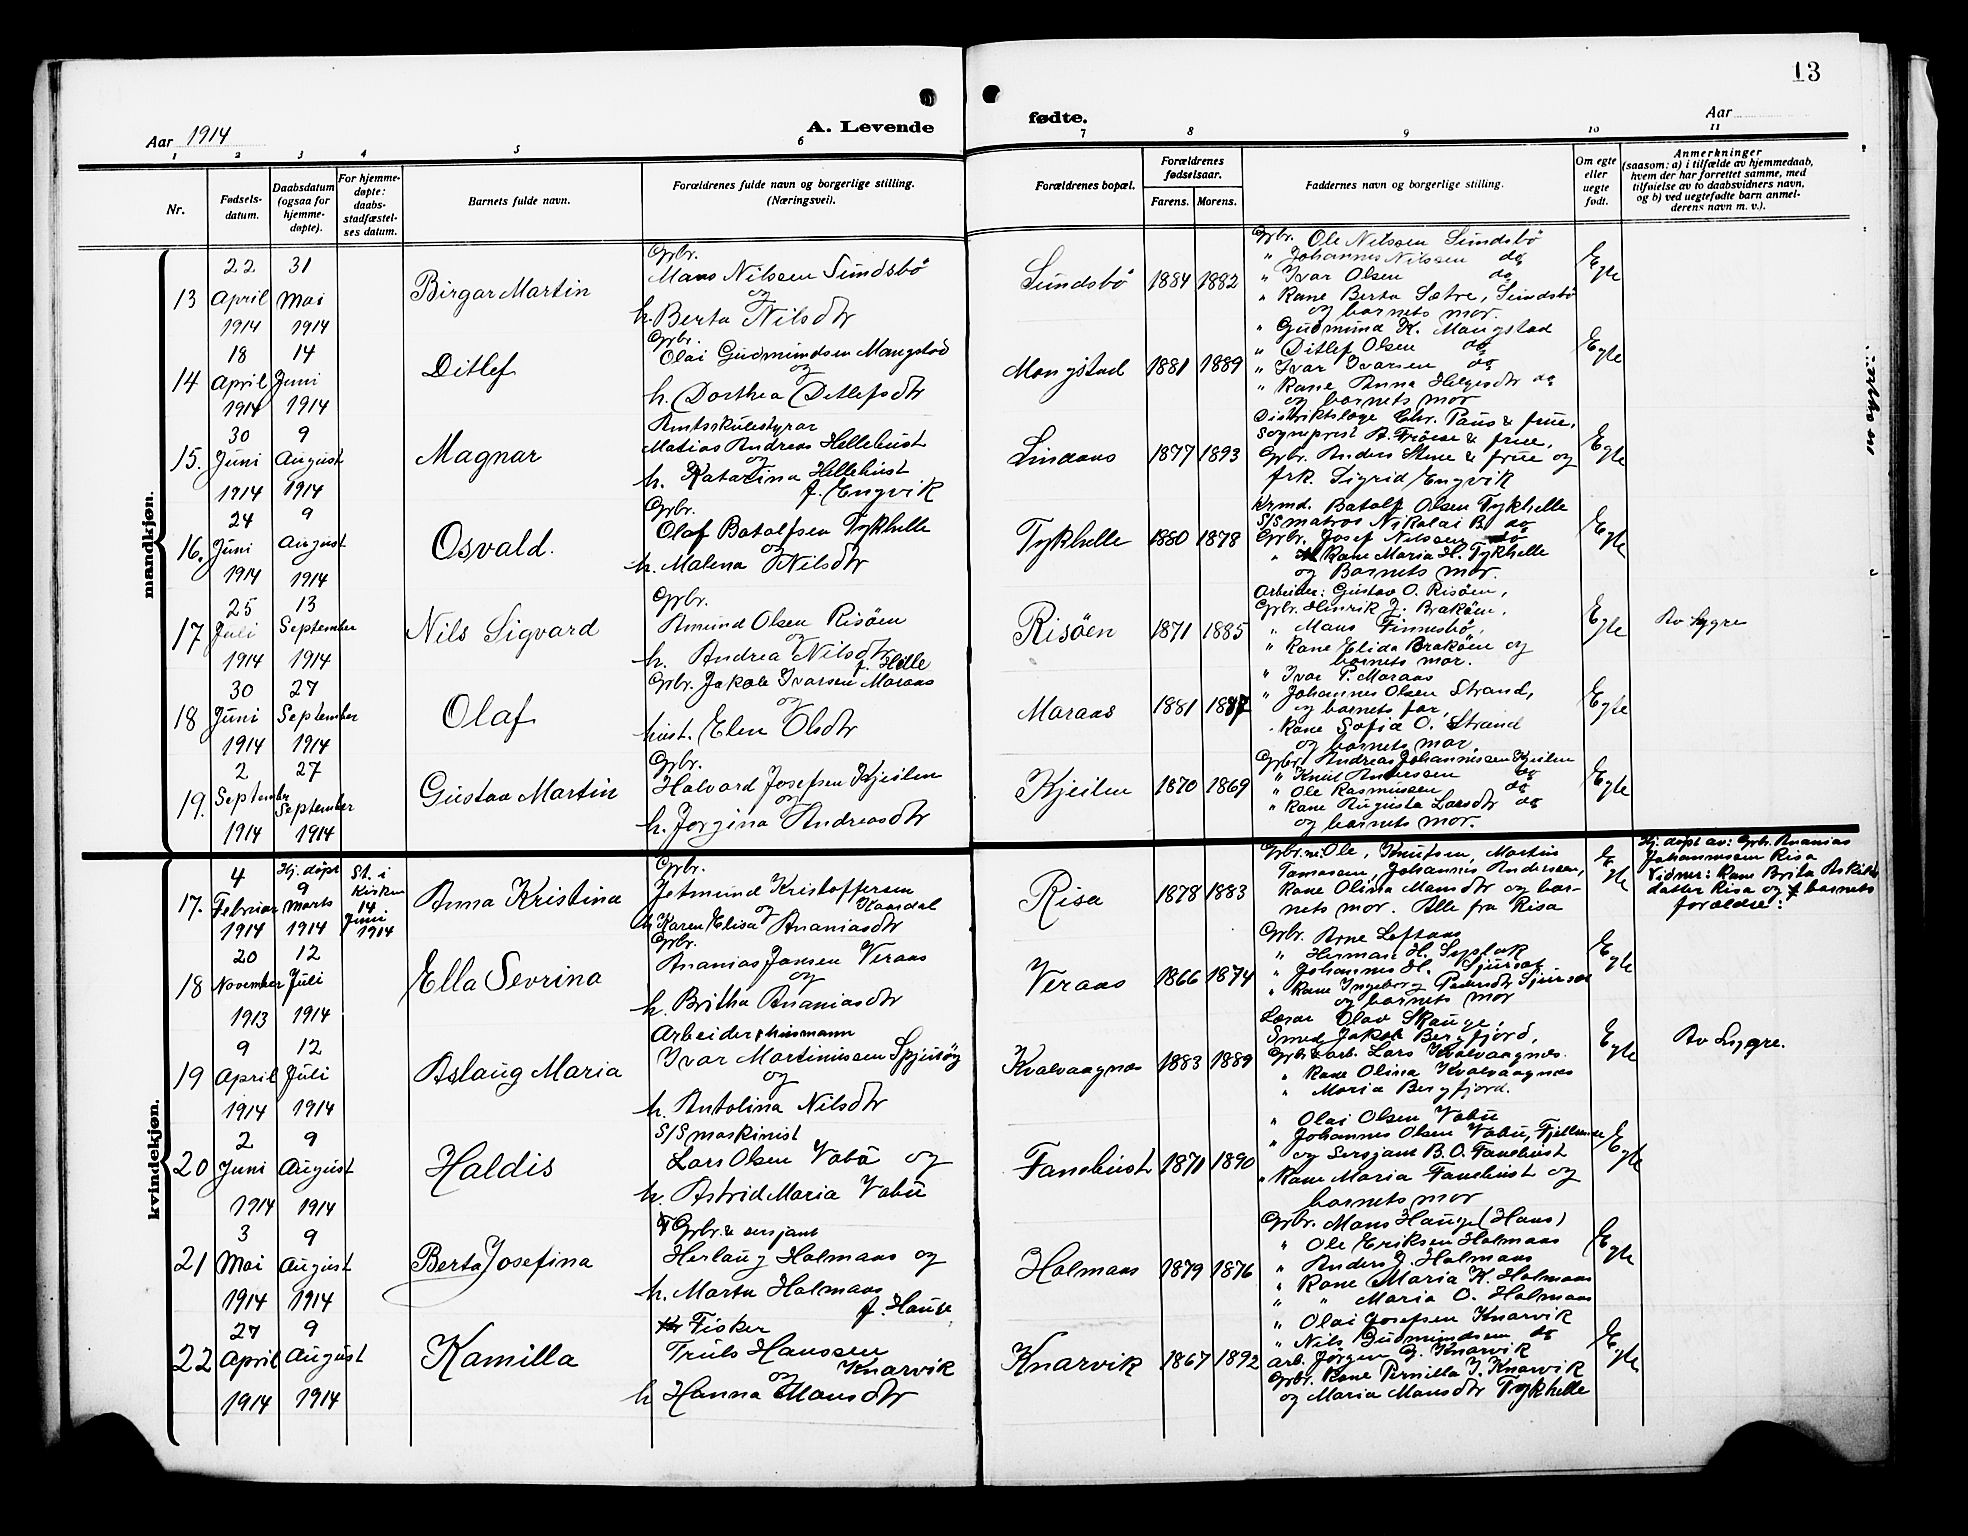 13
Aar 1914
A. Levende
fødte.
Aar
1 2 3 4 5 6 7 8 9 10 11
Nr.
Fødsels-
datum.
Daabsdatum
(ogsaa for
hjemme-
døpte).
For hjemme-
døpte:
daabs-
stadfæstel-
ses datum.
Barnets fulde navn.
Forældrenes fulde navn og borgerlige stilling.
(Næringsvei).
Forældrenes bopæl.
Forældrenes
fødselsaar.
Farens. Morens.
Faddernes navn og borgerlige stilling.
Om egte
eller
uegte
født.
Anmerkninger
(saasom: a) i tilfælde av hjemmedaab,
hvem der har forrettet samme, med
tilføielse av to daabsvidners navn,
og b) ved uegtefødte barn anmel-
derens navn m. v.).
mandkjøn.
13
22
April
1914
31
Mai
1914
Birgar Martin
Grbr.
Mans Nilssen Sundsbö
og
h. Berta Nilsdtr
Sundsbö
1884 1882
Grbr. Ole Nilssen Sundsbö
" Johannes Nilssen do
" Ivar Olsen do
" Kone Berta Sætre, Sundsbö
og barnets mor.
Egte
14
18
April
1914
14
Juni
1914
Ditlef
Grbr.
Olai Gudmundsen Mangstad
og
h. Dorthea Ditlefsdtr
Mongstad
1881 1889
" Gudmund K. Mangstad
" Ditlef Olsen do
" Ivar Ivarsen do
" Kone Anna Helgesdtr do
og barnets mor
Egte
15.
30
Juni
1914
9
August
1914
Magnar
Amtsskulestyrar
Matias Andreas Hellehust
og
h. Katarina Hellehust
f. Engvik
Lindaas
1877 1893
Distriktslæge Chr. Paus & frue,
Sogneprest A. & frue,
Grbr. Anders Stene & frue og
frk. Sigrid Engvik
Egte
16.
24
Juni
1914
9
August
1914
Osvald.
Grbr.
Olaf Batolfsen Tykhelle
og
h. Malena Nilsdtr
Tykhelle
1880 1878
Krmd. Batolf Olsen Tykhelle
S/S matros Nikolai B. do
Grbr. Josef Nilssen do
" Kone Maria H. Tykhelle
og Barnets mor.
Egte
17
25
Juli
1914
13
September
1914
Nils Sigvard
Grbr.
Amund Olsen Risöen
og
h. Andrea Nilsdtr
f. Helle
Risöen
1871 1885
Arbeider: Gustav O. Risöen,
Grbr. Hinrik J. Braköen,
" Mans Finnesbö,
" Kone Elida Braköen og
barnets mor.
Egte
Av Lygre
18
30
Juni
1914
27
September
1914
Olaf
Grbr. Jakob Ivarsen Maraas
og
hust. Elen Olsdtr
Maraas
1881 1887
" Ivar P. Maraas
" Johannes Olsen Strand,
og barnets far,
. Kone Sofia O. Strand
og barnets mor.
Egte
19.
2
September
1914
27
September
1914
Gustav Martin
Grbr.
Halvard Josefsen Kjeilen
og
h. Jorgina Andreasdtr
Kjeilen
1870 1869
Grbr. Andreas Johannessen Kjeilen
" Knut Andersen do
" Ole Rasmussen do
" Kone Augusta Larsdtr do
og barnets mor.
Egte
kvindekjøn.
17.
4
Februar
1914
Hj. døpt
9
Marts
1914
St. i
Kirken
14
Juni
1914
Anna Kristina
Grbr.
Jetmund Kristoffersen
Haasdal
og
h Karen Elisa Ananiasdtr
Risa
1878 1883
Grbr.ne: Ole, Knutsen, Martin
Tomassen, Johannes Andersen,
Kone Olina Mansdtr og bar-
nets mor. Alle fra Risa
Egte
Hj. døpt av: Grbr. Ananias
Johannessen Risa
Vidner: Kone Brita Askilds
datter Risa og barnets
forældre:
18
20
November
1913
12
Juli
1914
Ella Sevrina
Grbr.
Ananias Jansen Veraas
og
h. Britha Ananiasdtr
Veraas
1866 1874
Grbr. Arne Leftaas
" Herman H. Syslak
" Johannes H. Sjursæt
" Kone Ingeborg Pedersdtr Sjursæt
og barnets mor
Egte
19
9
April
1914
12
Juli
1914
Aslaug Maria
Arbeider & husmann
Ivar Martinussen Spjutöy
og
h. Antolina Nilsdtr
Kvalvaagnæs
1883 1889
Lærar Olav Skauge,
Smed Jakob Bergfjord,
Grbr & arb. Lars Kvalvaagnæs.
" Kone Olina Kvalvaagnæs
" Maria Bergfjord.
Egte
Av Lygre.
20
2
Juni
1914
9
August
1914
Haldis
S/S maskinist
Lars Olsen Vabö og
h. Astrid Maria Vabö
Fanehust
1871 1890
" Olai Olsen Vabö
" Johannes Olsen Vabö, Fjellanger
og Sersjant B. O. Fanehust
" Kone Maria Fanehust og
barnets mor
Egte
21
3
Mai
1914
9
August
1914
Berta Josefina
Grbr. & sersjant
Herlaug Holmaas og
h. Marta Holmaas
f. Hauge
Holmaas
1879 1876
Grbr. Mons Hauge (Haus)
" Ole Eriksen Holmaas
" Anders J. Holmaas
" Kone Maria K. Holmaas
" " Maria O. Holmaas
Egte
22
27
April
1914
9
August
1914
Kamilla
Fisker
Truls Hanssen
Knarvik
og
h Hanna Mansdtr
Knarvik
1867 1892
" Olai Josefsen Knarvik
" Nils Gudmundsen do
arb. Jörgen G. Knarvik
Grbr. Kone Pernilla I. Knarvik
og Maria Mansdtr Tykhelle
Egte